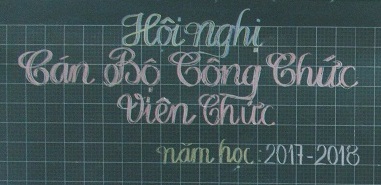 Hội nghị
Cán Bộ Công Chức
Viên Chức
năm học: 2017-2018